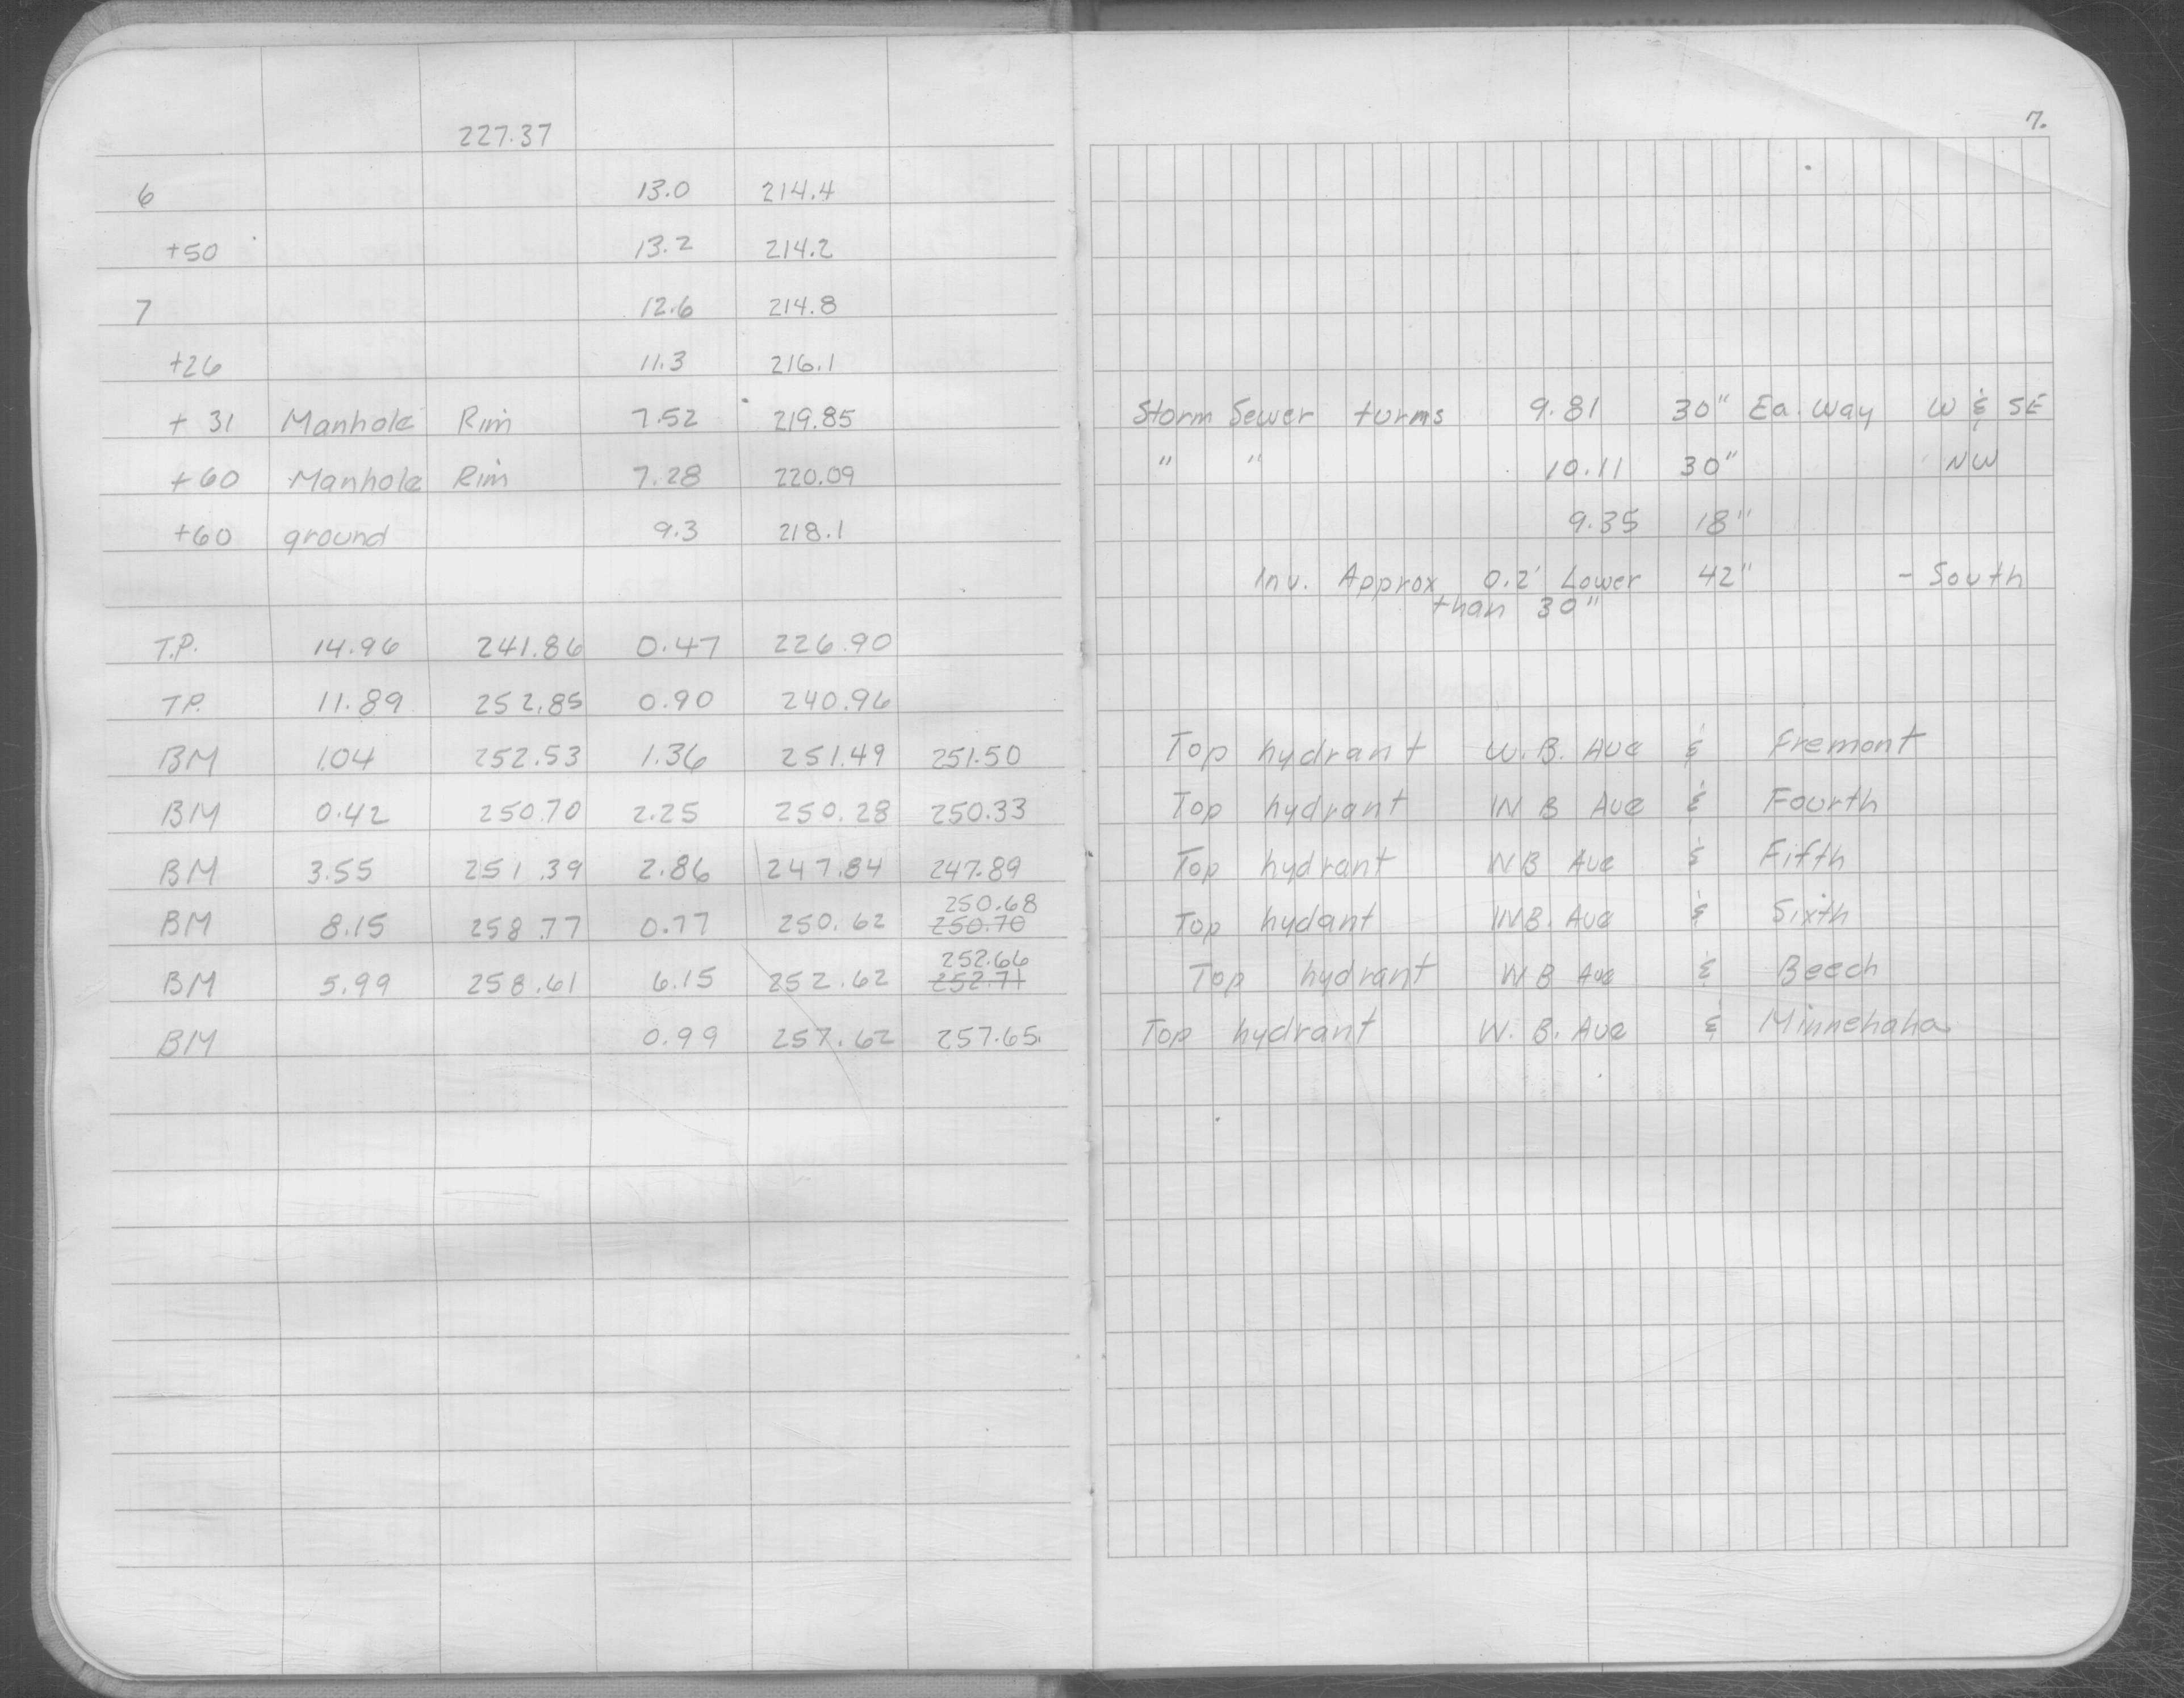 227.37
6 13.0 214.4
+50 13.2 214.2
7 12.6 214.8
+26 11.3 216.1
+ 31 Manhole Rim 7.52 219.85
+60 Manhole Rim 7.28 220.09
+60 ground 9.3 218.1
T.P. 14.96 241.86 0.47 226.90
T.P. 11.89 252.85 0.90 240.96
BM 1.04 252.53 1.36 251.49 251.50
BM 0.42 250.70 2.25 250.28 250.33
BM 3.55 251.39 2.86 247.84 247.89
250.68
BM 8.15 258.77 0.77 250.62 250.70
252.66
BM 5.99 258.61 6.15 252.62 252.71
BM 0.99 257.62 257.65
7.
Storm Sewer turns 9.81 30" Ea. Way W & SE
" " 10.11 30" NW
9.35 18"
Inv. Approx 0.2' Lower 42" - South
than 30"
Top hydrant W. B. Ave & Fremont
Top hydrant W B Ave & Fourth
Top hydrant WB Ave & Fifth
Top hydant WB. Ave & Sixth
Top hydrant W B Ave & Beech
Top hydrant W. B. Ave & Minnehaha